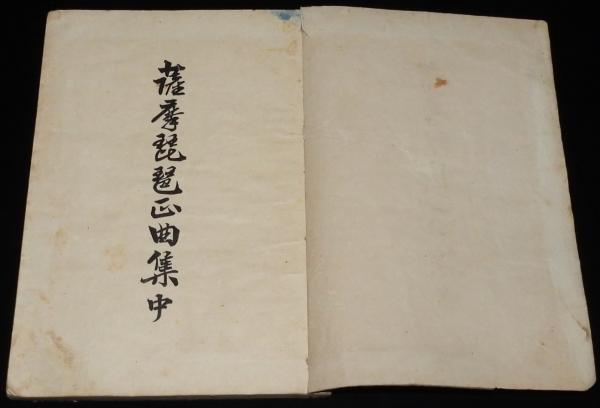 薩摩琵琶正曲集中